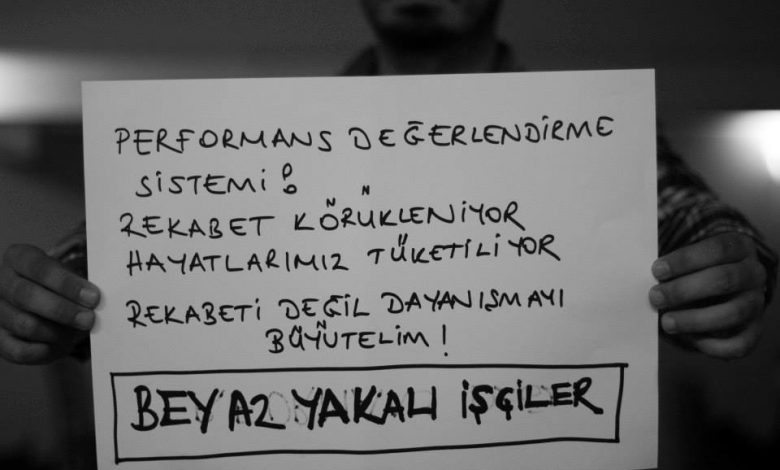 PERFORMANS DEĞERLENDİRME
SİSTEMİ!
REKABET KÖRÜKLENİYOR
HAYATLARIMIZ TÜKETİLİYOR
REKABETİ DEĞİL DAYANIŞMAYI
BÜYÜTELİM!
BEYAZ YAKALI İŞÇİLER